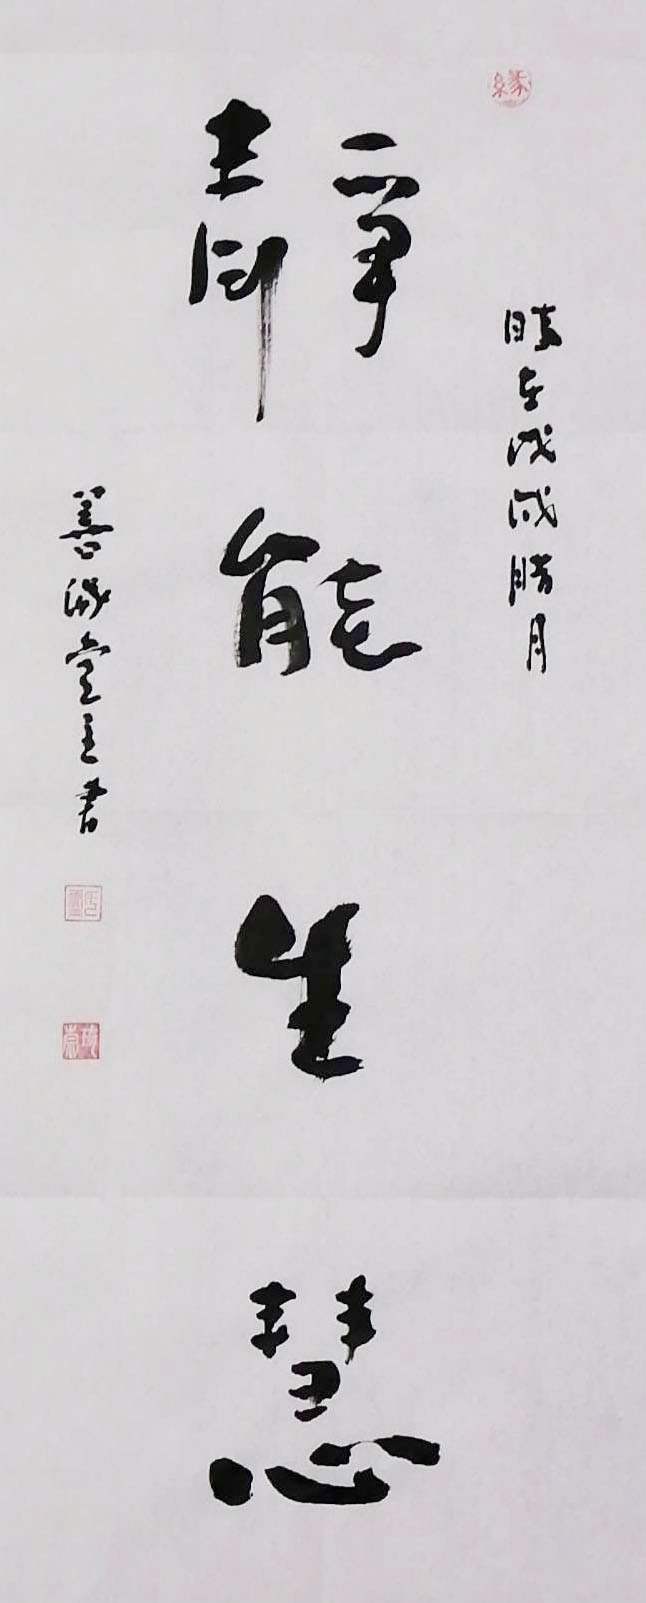 時在戊戌腊月
靜能生慧
善缘堂主書
缘